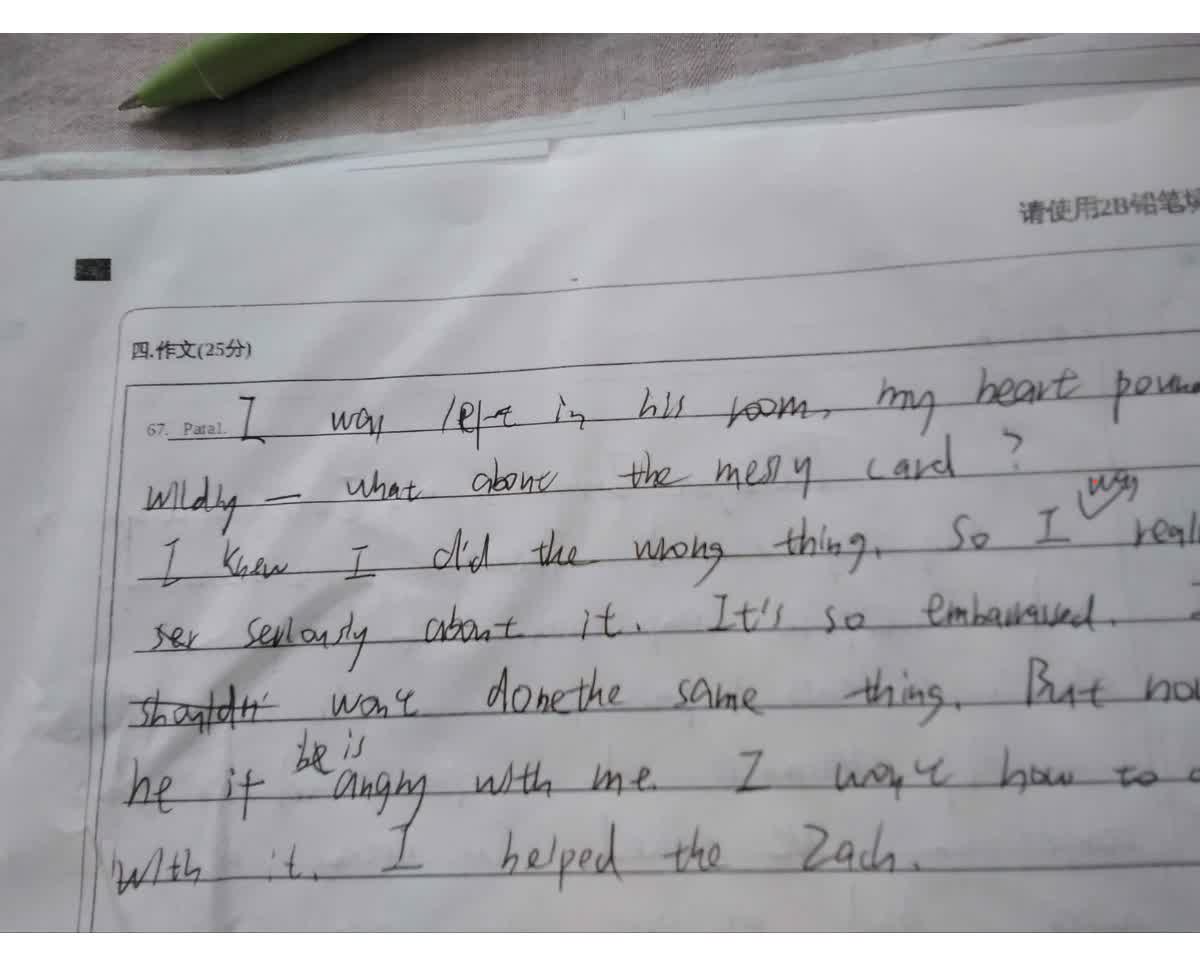 请使用2B铅笔填
四.作文(25分)
67. Para1. I was left in his room, my heart poun
wildly — what about the messy card ?
I knew I did the wrong thing. So I was real
ser seriously about it. It's so embarrassed.
shouldn' won't done the same thing. But
he if be is angry with me. I won't how to
with it. I helped the Zach.